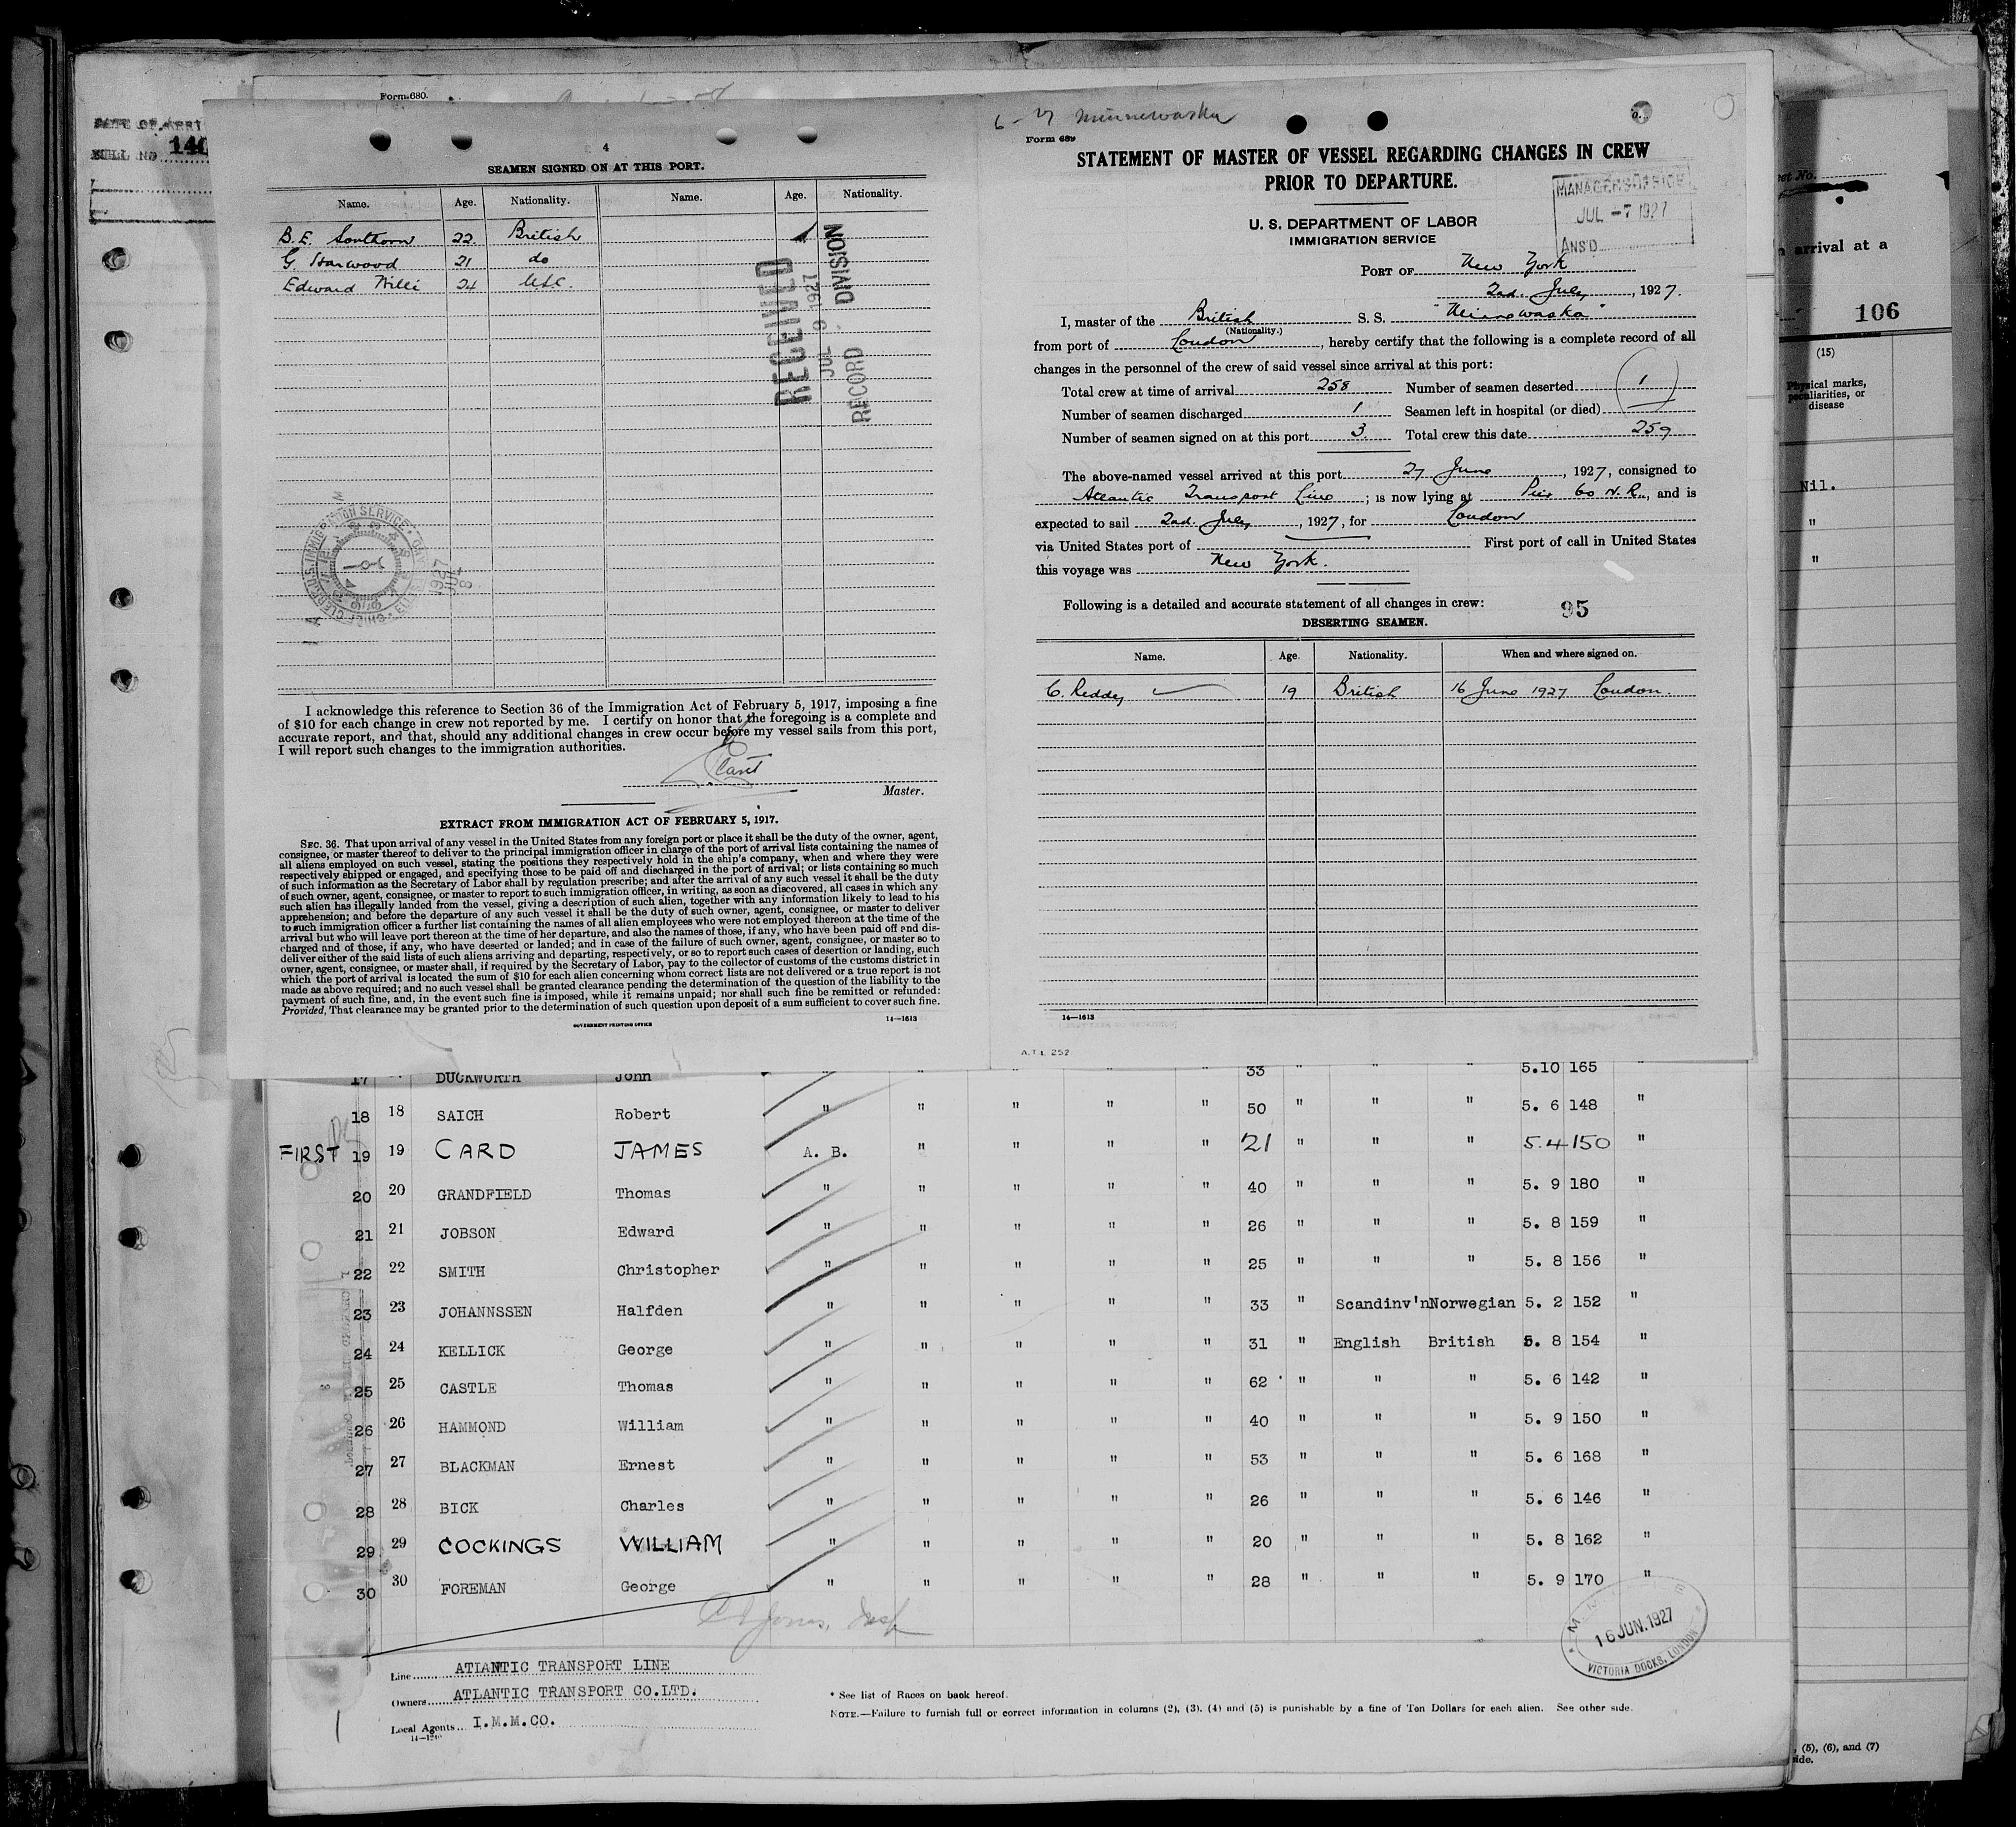 Form 680.
DATE OF ARRI
140
4
SEAMEN SIGNED ON AT THIS PORT.
Name. Age. Nationality. Name. Age. Nationality.
B. E. Southorn 22. British
G. Harwood 21 do
Edward Wille 24
RECEIVED
JUL 9 1927
RECORD DIVISION
I acknowledge this reference to Section 36 of the Immigration Act of February 5, 1917, imposing a fine
of $10 for each change in crew not reported by me. I certify on honor that the foregoing is a complete and
accurate report, and that, should any additional changes in crew occur before my vessel sails from this port,
I will report such changes to the immigration authorities.
Master.
EXTRACT FROM IMMIGRATION ACT OF FEBRUARY 5, 1917.
SEC. 36. That upon arrival of any vessel in the United States from any foreign port or place it shall be the duty of the owner, agent,
consignee, or master thereof to deliver to the principal immigration officer in charge of the port of arrival lists containing the names of
all aliens employed on such vessel, stating the positions they respectively hold in the ship's company, when and where they were
respectively shipped or engaged, and specifying those to be paid off and discharged in the port of arrival; or lists containing so much
of such information as the Secretary of Labor shall by regulation prescribe; and after the arrival of any such vessel it shall be the duty
of such owner, agent, consignee, or master to report to such immigration officer, in writing, as soon as discovered, all cases in which any
such alien has illegally landed from the vessel, giving a description of such alien, together with any information likely to lead to his
apprehension; and before the departure of any such vessel it shall be the duty of such owner, agent, consignee, or master to deliver
to such immigration officer a further list containing the names of all alien employees who were not employed thereon at the time of the
arrival but who will leave port thereon at the time of her departure, and also the names of those, if any, who have been paid off and dis-
charged and of those, if any, who have deserted or landed; and in case of the failure of such owner, agent, consignee, or master so to
deliver either of the said lists of such aliens arriving and departing, respectively, or so to report such cases of desertion or landing, such
owner, agent, consignee, or master shall, if required by the Secretary of Labor, pay to the collector of customs of the customs district in
which the port of arrival is located the sum of $10 for each alien concerning whom correct lists are not delivered or a true report is not
made as above required; and no such vessel shall be granted clearance pending the determination of the question of the liability to the
payment of such fine, and, in the event such fine is imposed, while it remains unpaid; nor shall such fine be remitted or refunded:
Provided, That clearance may be granted prior to the determination of such question upon deposit of a sum sufficient to cover such fine.
GOVERNMENT PRINTING OFFICE 14—1613
6 - 27 Minnewaska
Form 689
STATEMENT OF MASTER OF VESSEL REGARDING CHANGES IN CREW
PRIOR TO DEPARTURE.
MANAGER'S OFFICE
JUL -7 1927
ANS'D
U. S. DEPARTMENT OF LABOR
IMMIGRATION SERVICE
PORT OF New York
2nd. July, 1927.
I, master of the British S. S. "Minnewaska"
(Nationality.)
from port of London, hereby certify that the following is a complete record of all
changes in the personnel of the crew of said vessel since arrival at this port:
Total crew at time of arrival 258 Number of seamen deserted 1
Number of seamen discharged 1 Seamen left in hospital (or died)
Number of seamen signed on at this port 3. Total crew this date 259
The above-named vessel arrived at this port 27 June, 1927, consigned to
Atlantic Transport Line; is now lying at Pier 60 N. R., and is
expected to sail 2nd. July, 1927, for London
via United States port of First port of call in United States
this voyage was New York.
Following is a detailed and accurate statement of all changes in crew: 95
DESERTING SEAMEN.
Name. Age. Nationality. When and where signed on.
C. Reddy 19 British 16 June 1927 London.
14—1613
A.T.L. 252
eet No.
n arrival at a
106
(15)
Physical marks,
peculiarities, or
disease
Nil.
"
"
17 DUCKWORTH John " " " " 33 " " " 5.10 165 "
18 18 SAICH Robert " " " " " 50 " " " 5. 6 148 "
FIRST 19 19 CARD JAMES A. B. " " " " 21 " " " 5.4 150 "
20 20 GRANDFIELD Thomas " " " " " 40 " " " 5. 9 180 "
21 21 JOBSON Edward " " " " " 26 " " " 5. 8 159 "
22 22 SMITH Christopher " " " " " 25 " " " 5. 8 156 "
23 23 JOHANNSSEN Halfden " " " " " 33 " Scandinv'n Norwegian 5. 2 152 "
24 24 KELLICK George " " " " " 31 " English British 5. 8 154 "
25 25 CASTLE Thomas " " " " " 62 " " " 5. 6 142 "
26 26 HAMMOND William " " " " " 40 " " " 5. 9 150 "
27 27 BLACKMAN Ernest " " " " " 53 " " " 5. 6 168 "
28 28 BICK Charles " " " " " 26 " " " 5. 6 146 "
29 29 COCKINGS WILLIAM " " " " " 20 " " " 5. 8 162 "
30 30 FOREMAN George " " " " " 28 " " " 5. 9 170 "
16 JUN. 1927
VICTORIA DOCKS, LONDON
Line ATLANTIC TRANSPORT LINE
Owners ATLANTIC TRANSPORT CO.LTD.
Local Agents I.M.M.CO.
14—1240
* See list of Races on back hereof.
NOTE.—Failure to furnish full or correct information in columns (2), (3), (4) and (5) is punishable by a fine of Ten Dollars for each alien. See other side.
, (5), (6), and (7)
side.